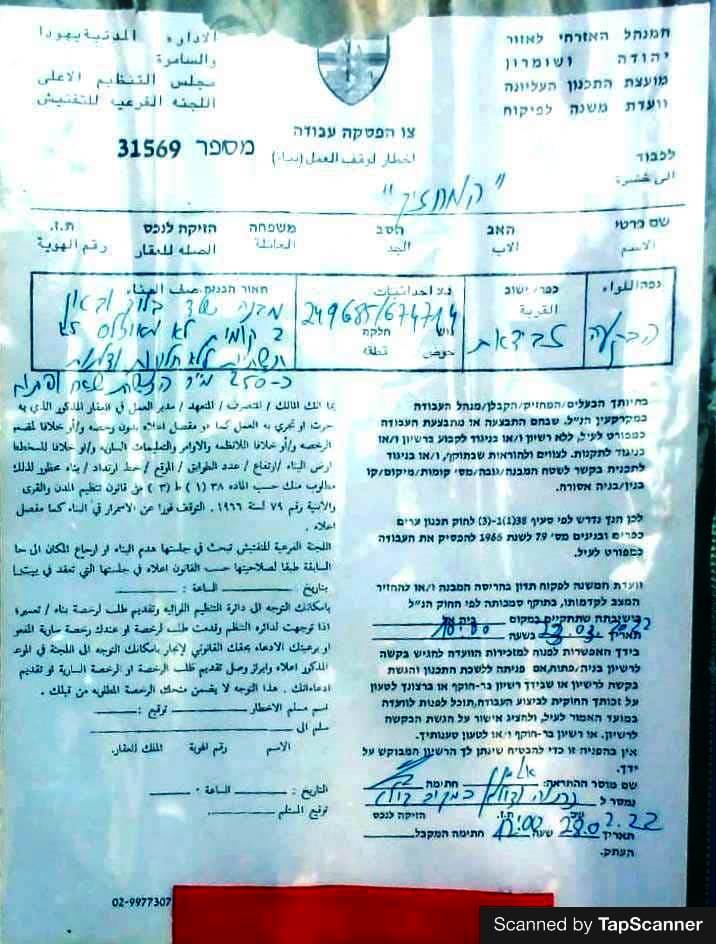 המנהל האזרחי לאזור
יהודה ושומרון
מועצת התכנון העליונה
וועדת משנה לפיקוח
الاداره المدنية يهودا
والسامرة
مجلس التنظيم الاعلى
اللجنه الفرعيه للتفتيش
צו הפסקה עבודה
اخطار لوقف العمل (بناء)
מספר 31569
לכבוד
الى حضرة
"המחזיק"
שם פרטי האב הסב משפחה הזיקה לנכס ת.ז.
الاسم الاب الجد العائلة الصله للعقار رقم الهوية
נפה/اللواء
הבקעה
כפר/ישוב
القرية
זבידאת
נ.צ/احداثيات
249685/674714
גוש חלקה
حوض قطعة
תאור הבנוי/وصف البناء
מבנה
2 קומות לא מאוכלס
כ-250 מ"ר
בהיותך הבעלים/המחזיק/הקבלן/מנהל העבודה
במקרקעין הנ"ל. שבהם התבצעה או מתבצעת העבודה
כמפורט לעיל, ללא רשיון ו/או בניגוד לקבוע ברשיון ו/או
בניגוד לתקנות. לצווים ולהוראות שבתוקף, ו/או בניגוד
לתכנית בקשר לשטח המבנה/גובה/מס' קומות/מיקום/קו
בנין/בניה אסורה.
לכן הנך נדרש לפי סעיף 38(1)-(3) לחוק תכנון ערים
כפרים ובנינים מס' 79 לשנת 1966 להפסיק את העבודה
כמפורט לעיל.
וועדת המשנה לפיקוח תדון בהריסת המבנה ו/או להחזיר
המצב לקדמותו, בתוקף סמכותה לפי החוק הנ"ל
בישיבתה שתתקיים במקום בית אל
תאריך בשעה 10:00
בידך האפשרות לפנות למזכירות הוועדה להגיש בקשה
לרשיון בניה/פתוח, אם פניתה ללשכת התכנון והגשת
בקשה לרשיון או שבידך רשיון בר-תוקף או ברצונך לטעון
על זכותך החוקית לביצוע העבודה, תוכל לפנות לוועדה
במועד האמור לעיל, ולהציג אישור על הגשת הבקשה
לרשיון, או רשיון בר-תוקף ו/או לטעון טענותיך.
אין בהפניה זו כדי להבטיח שינתן לך הרשיון המבוקש על
ידך.
שם מוסר ההתראה: חתימה
נמסר ל
ת.ז. הזיקה לנכס
תאריך 28.02.22 שעה חתימה המקבל
העתק.
بما انك المالك / المتصرف / المتعهد / مدير العمل في العقار المذكور الذي به
جرت او تجري به العمل كما هو مفصل اعلاه بدون رخصه و/أو خلافا لمقسم
الرخصه و/أو خلافا للانظمه والاوامر والتعليمات الساريه و/أو خلافا للمخطط
ارض البناء / ارتفاع / عدد الطوابق / الموقع / خط ارتداد / بناء محظور لذلك
مطلوب منك حسب الماده ٣٨ (١) ط (٣) من قانون تنظيم المدن والقرى
والابنية رقم ٧٩ لسنة ١٩٦٦ . التوقف فورا عن الاستمرار في البناء كما مفصل
اعلاه .
اللجنه الفرعيه للتفتيش تبحث في جلستها هدم البناء او ارجاع المكان الى حا
السابقة طبقا لصلاحيتها حسب القانون اعلاه في جلستها التي تعقد في
بتاريخ الساعة :
بامكانك التوجه الى دائرة التنظيم
اذا توجهت لدائره التنظيم وقدمت طلب لرخصة او عندك رخصة سارية المفعول
او برغبتك الادعاء بحقك القانوني لإنجاز بامكانك التوجه الى اللجنة في الموعد
المذكور اعلاه وابراز وصل تقديم طلب الرخصة او الرخصة السارية او تقديم
ادعاءاتك . هذا التوجه لا يضمن منحك الرخصة المطلوبه من قبلك .
اسم مسلم الاخطار توقيع :
سلم الى
الاسم رقم الهوية الملك للعقار.
التاريخ : الساعة :
توقيع المستلم
02-9977307
Scanned by TapScanner